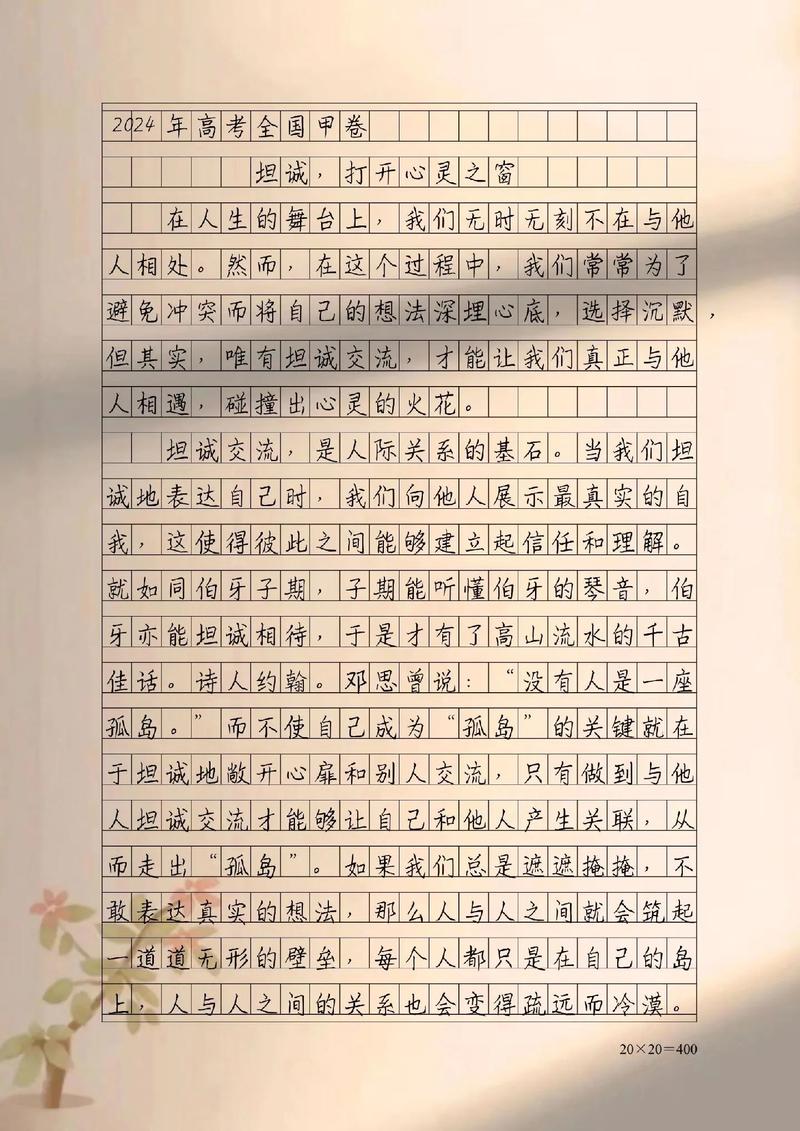 2024年高考全国甲卷
坦诚，打开心灵之窗
在人生的舞台上，我们无时无刻不在与他
人相处。然而，在这个过程中，我们常常为了
避免冲突而将自己的想法深埋心底，选择沉默，
但其实，唯有坦诚交流，才能让我们真正与他
人相遇，碰撞出心灵的火花。
坦诚交流，是人际关系的基石。当我们坦
诚地表达自己时，我们向他人展示最真实的自
我，这使得彼此之间能够建立起信任和理解。
就如同伯牙子期，子期能听懂伯牙的琴音，伯
牙亦能坦诚相待，于是才有了高山流水的千古
佳话。诗人约翰。邓思曾说：“没有人是一座
孤岛。”而不使自己成为“孤岛”的关键就在
于坦诚地敞开心扉和别人交流，只有做到与他
人坦诚交流才能够让自己和他人产生关联，从
而走出“孤岛”。如果我们总是遮遮掩掩，不
敢表达真实的想法，那么人与人之间就会筑起
一道道无形的壁垒，每个人都只是在自己的岛
上，人与人之间的关系也会变得疏远而冷漠。
20×20=400